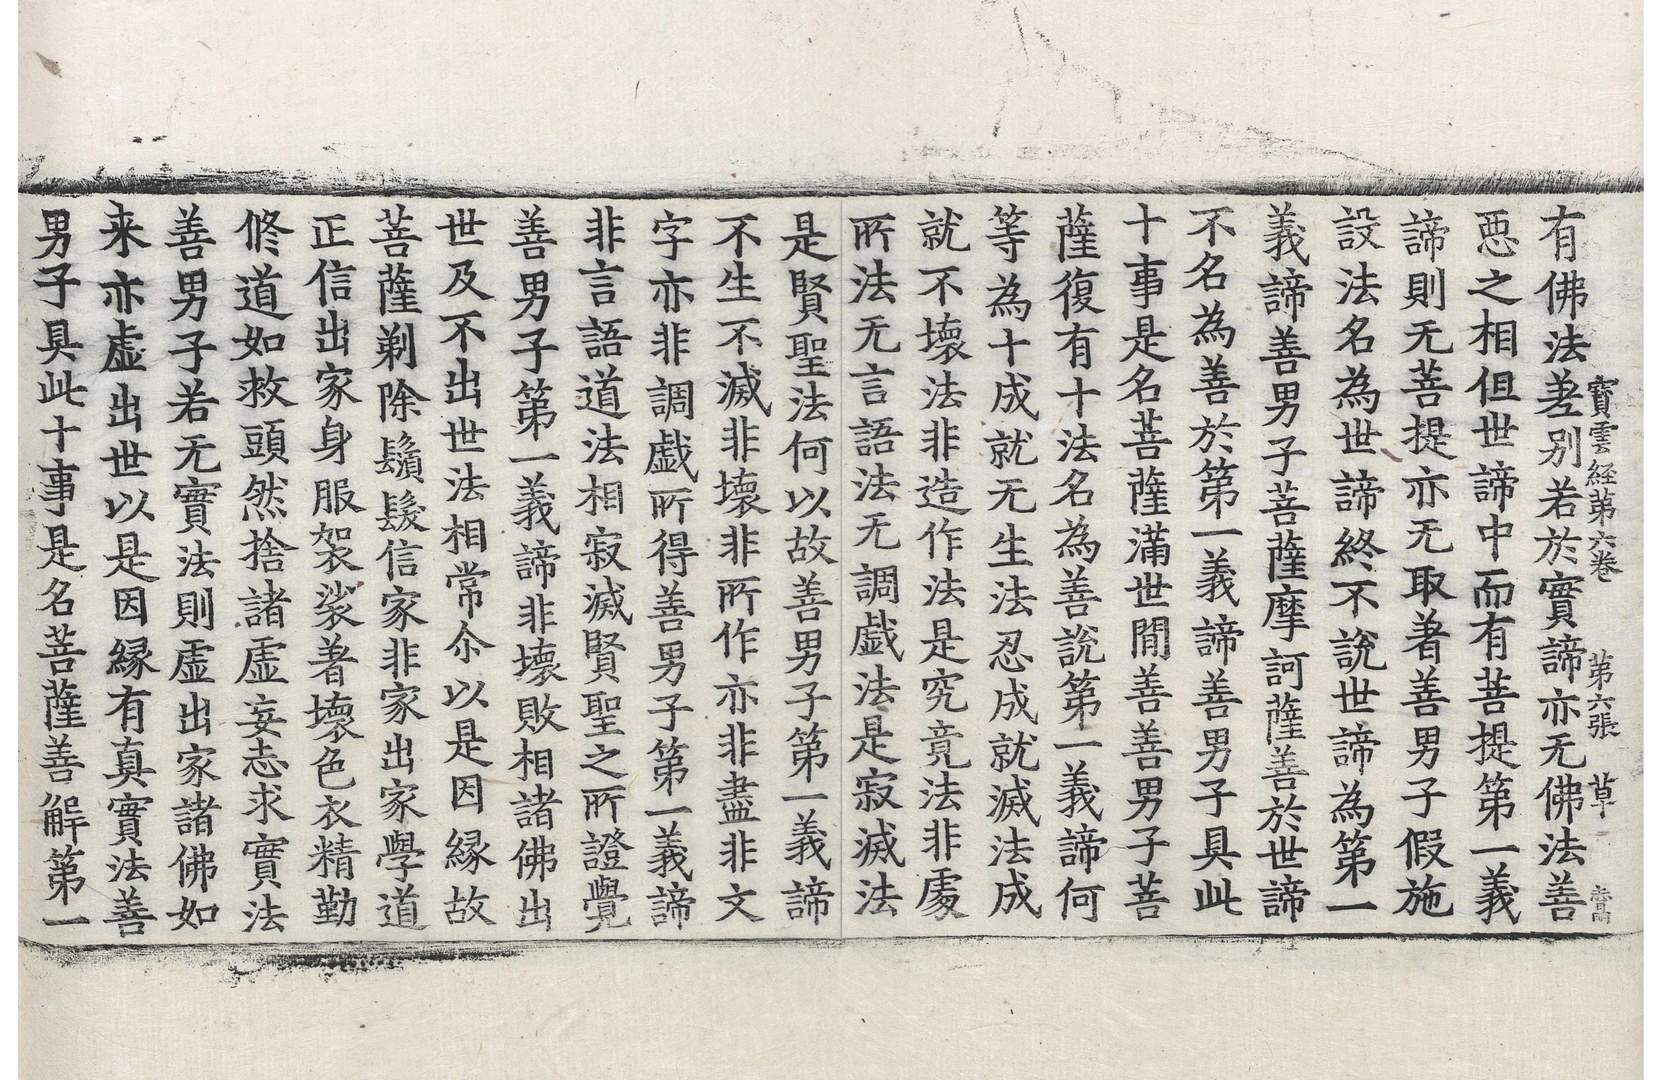 寶雲経第六卷 第六張 草
有佛法差別若於實諦亦无佛法善
悪之相但世諦中而有菩提第一義
諦則无菩提亦无取著善男子假施
設法名為世諦終不說世諦為第一
義諦善男子菩薩摩訶薩善於世諦
不名為善於第一義諦善男子具此
十事是名菩薩滿世間善善男子菩
薩復有十法名為善說第一義諦何
等為十成就无生法忍成就滅法成
就不壞法非造作法是究竟法非處
所法无言語法无調戲法是寂滅法
是賢聖法何以故善男子第一義諦
不生不滅非壞非所作亦非盡非文
字亦非調戲所得善男子第一義諦
非言語道法相寂滅賢聖之所證覺
善男子第一義諦非壞敗相諸佛出
世及不出世法相常尒以是因緣故
菩薩剃除鬚髮信家非家出家學道
正信出家身服袈裟著壞色衣精勤
修道如救頭然捨諸虛妄志求實法
善男子若无實法則虛出家諸佛如
来亦虛出世以是因緣有真實法善
男子具此十事是名菩薩善解第一